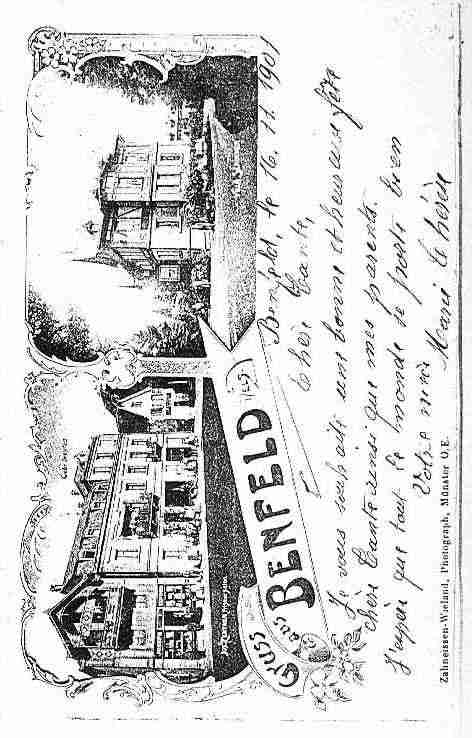 Gruss aus
BENFELD
Benfeld, le 16. 11. 1901
Chère Tante,
Je vous souhaite une bonne et heureuse fête
chère Tante ainsi que mes parents.
J'espère que tout le monde se porte bien
Votre nièce
Marie Thérèse
Zahneissen-Wieland, Photograph, Münster O.E.